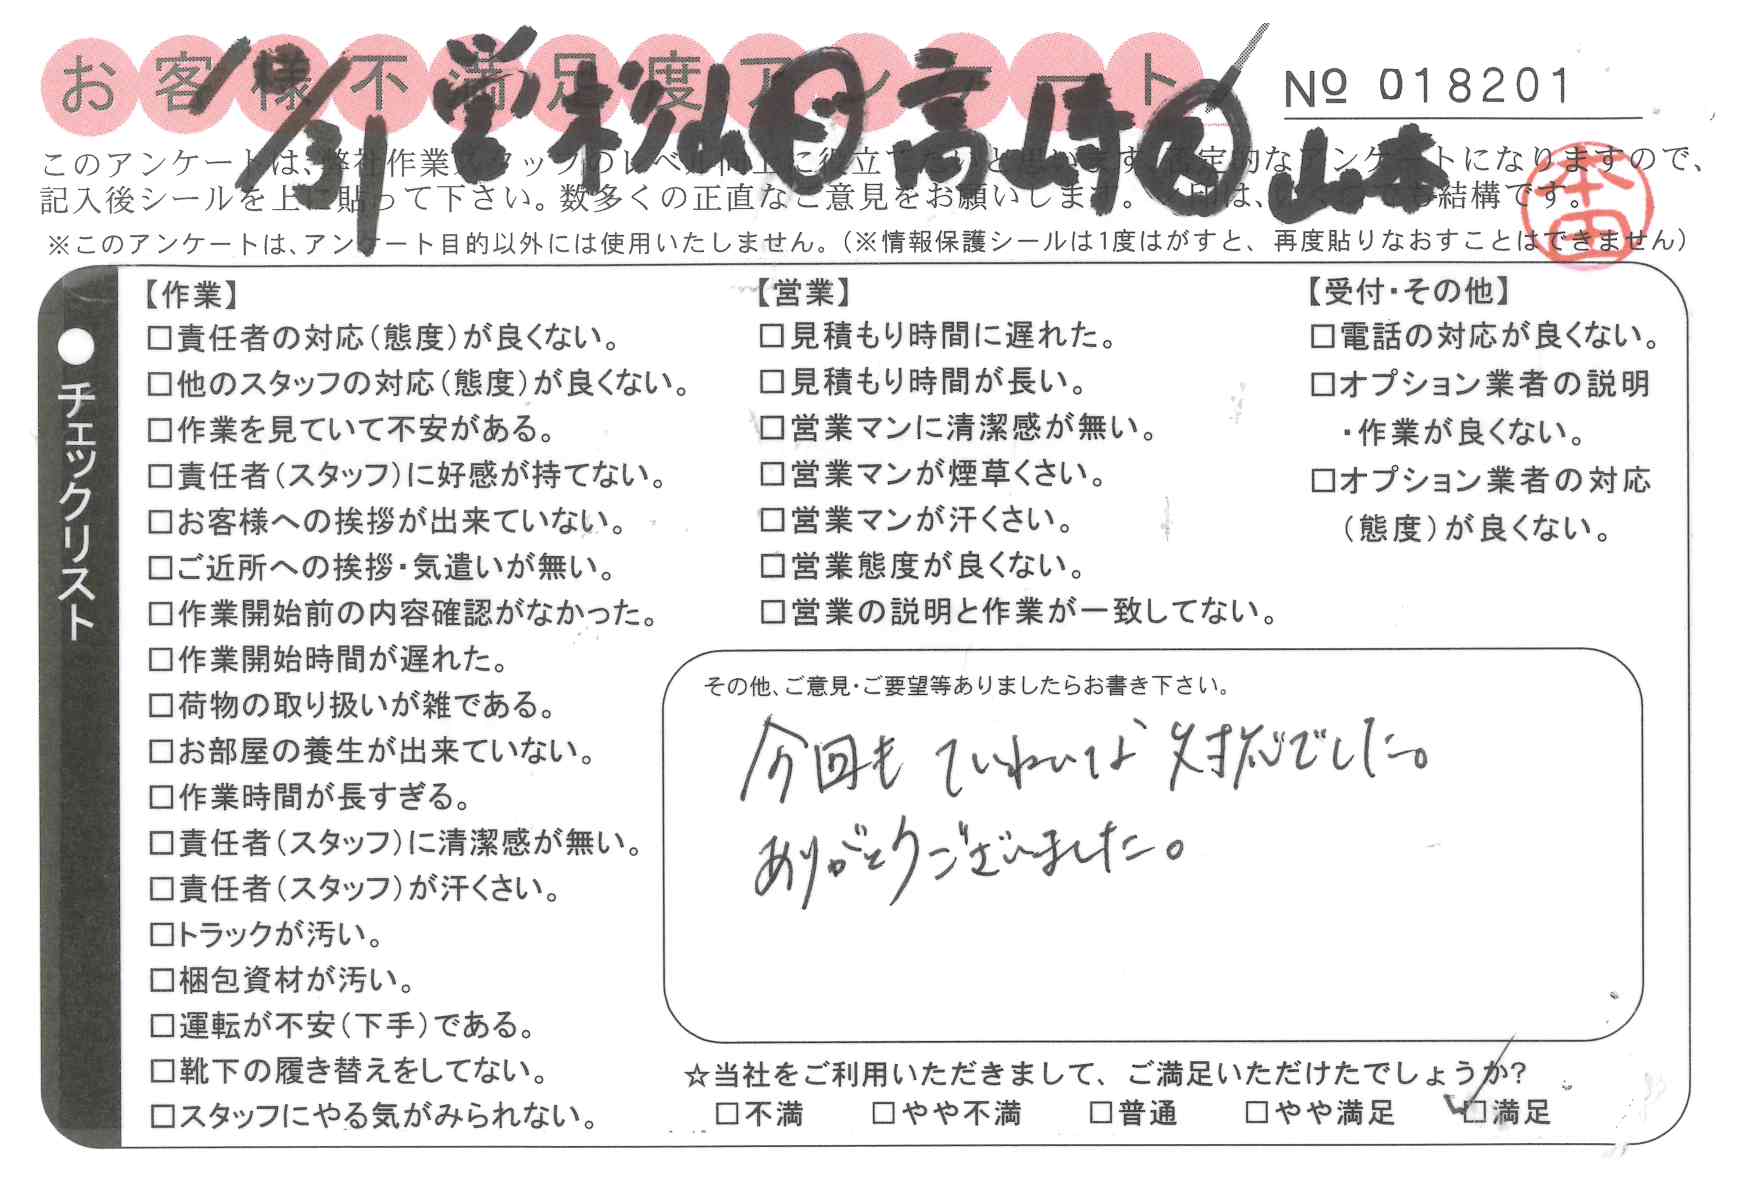 お客様不満足度アンケート
No 018201
営 松山 高崎 山本
このアンケートは、弊社作業スタッフのレベル向上に役立てたいと思います。不定的なアンケートになりますので、
記入後シールを上に貼って下さい。数多くの正直なご意見をお願いします。
※このアンケートは、アンケート目的以外には使用いたしません。（※情報保護シールは1度はがすと、再度貼りなおすことはできません）
本田
●チェックリスト
【作業】
□責任者の対応（態度）が良くない。
□他のスタッフの対応（態度）が良くない。
□作業を見ていて不安がある。
□責任者（スタッフ）に好感が持てない。
□お客様への挨拶が出来ていない。
□ご近所への挨拶・気遣いが無い。
□作業開始前の内容確認がなかった。
□作業開始時間が遅れた。
□荷物の取り扱いが雑である。
□お部屋の養生が出来ていない。
□作業時間が長すぎる。
□責任者（スタッフ）に清潔感が無い。
□責任者（スタッフ）が汗くさい。
□トラックが汚い。
□梱包資材が汚い。
□運転が不安（下手）である。
□靴下の履き替えをしてない。
□スタッフにやる気がみられない。
【営業】
□見積もり時間に遅れた。
□見積もり時間が長い。
□営業マンに清潔感が無い。
□営業マンが煙草くさい。
□営業マンが汗くさい。
□営業態度が良くない。
□営業の説明と作業が一致してない。
【受付・その他】
□電話の対応が良くない。
□オプション業者の説明
・作業が良くない。
□オプション業者の対応
（態度）が良くない。
その他、ご意見・ご要望等ありましたらお書き下さい。
今回も ていねいな 対応でした。
ありがとうございました。
☆当社をご利用いただきまして、ご満足いただけたでしょうか?
□不満 □やや不満 □普通 □やや満足 ☑満足